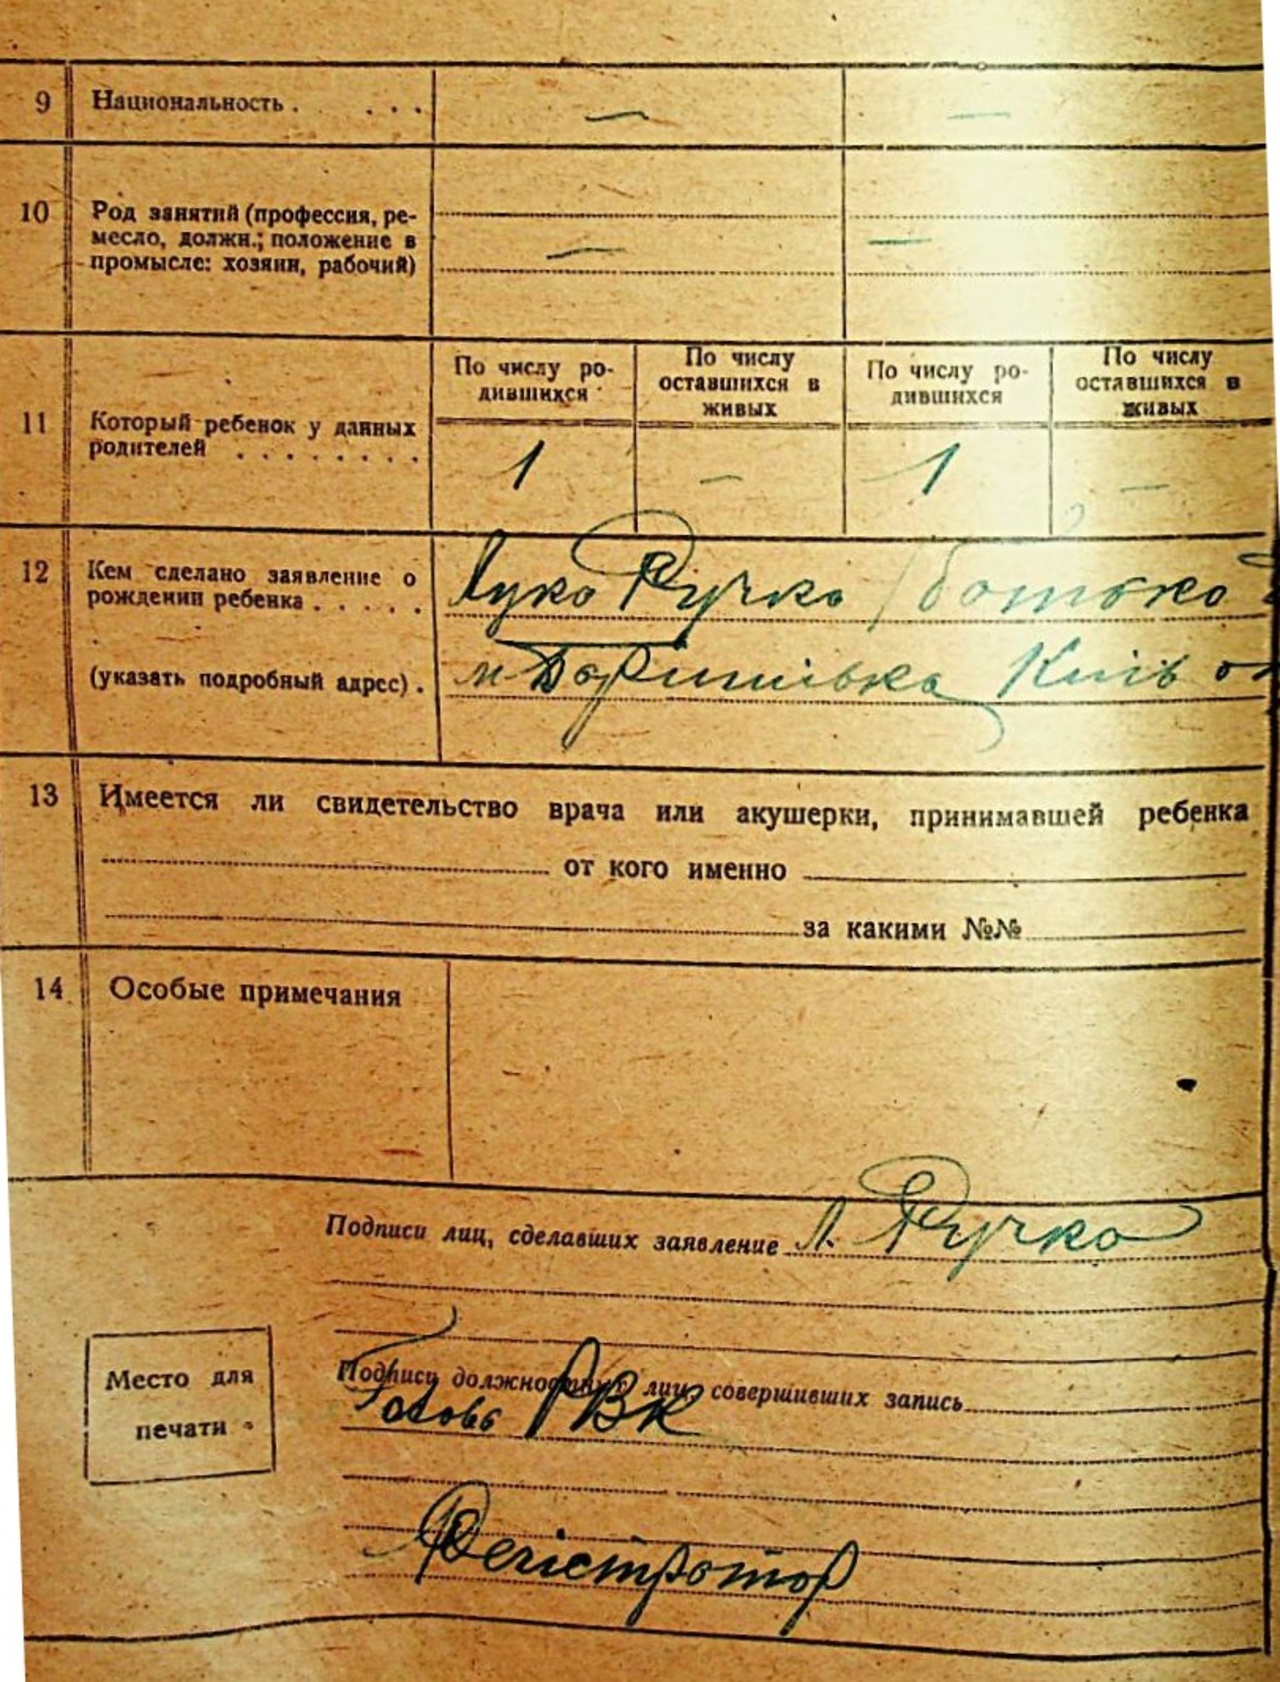 9 Национальность . . . . — —
10 Род занятий (профессия, ре-
месло, должн.; положение в
промысле: хозяин, рабочий) — —
По числу ро-
дившихся
По числу
оставшихся в
живых
По числу ро-
дившихся
По числу
оставшихся в
живых
11 Который ребенок у данных
родителей . . . . . . . . 1 — 1 —
12 Кем сделано заявление о
рождении ребенка . . . . . Лука Ручка батько
(указать подробный адрес) . м Баришівка Київ
13 Имеется ли свидетельство врача или акушерки, принимавшей ребенка
от кого именно
за какими №№
14 Особые примечания
Подписи лиц, сделавших заявление Л. Ручка
Подписи должностных лиц, совершивших запись
Голова РВК
Место для
печати
Реєстратор